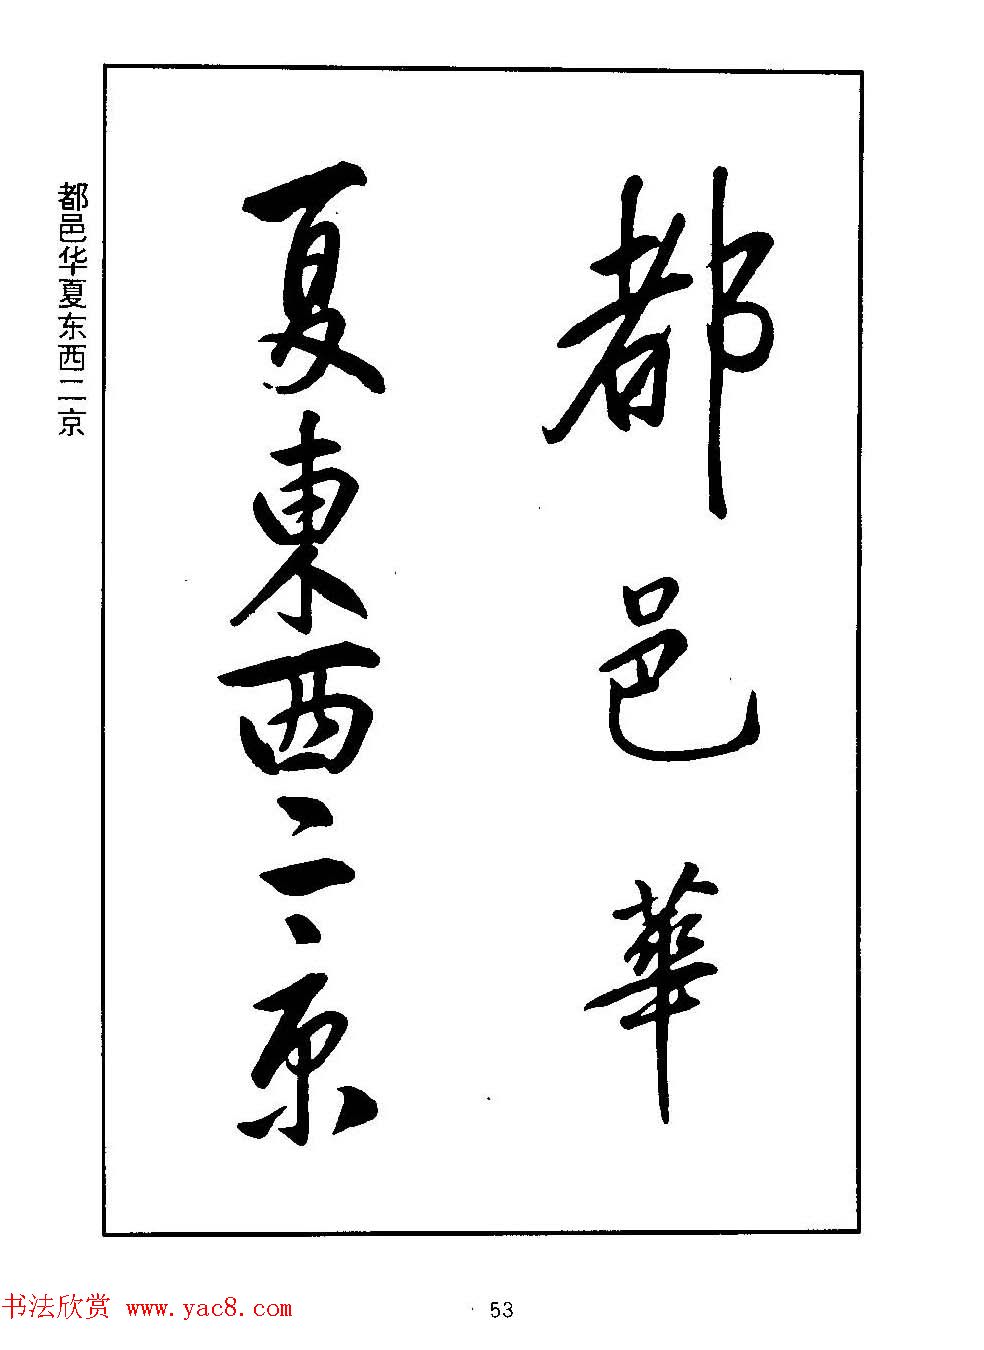 都邑華
夏東西二京
都邑华夏东西二京
书法欣赏 www.yac8.com
53